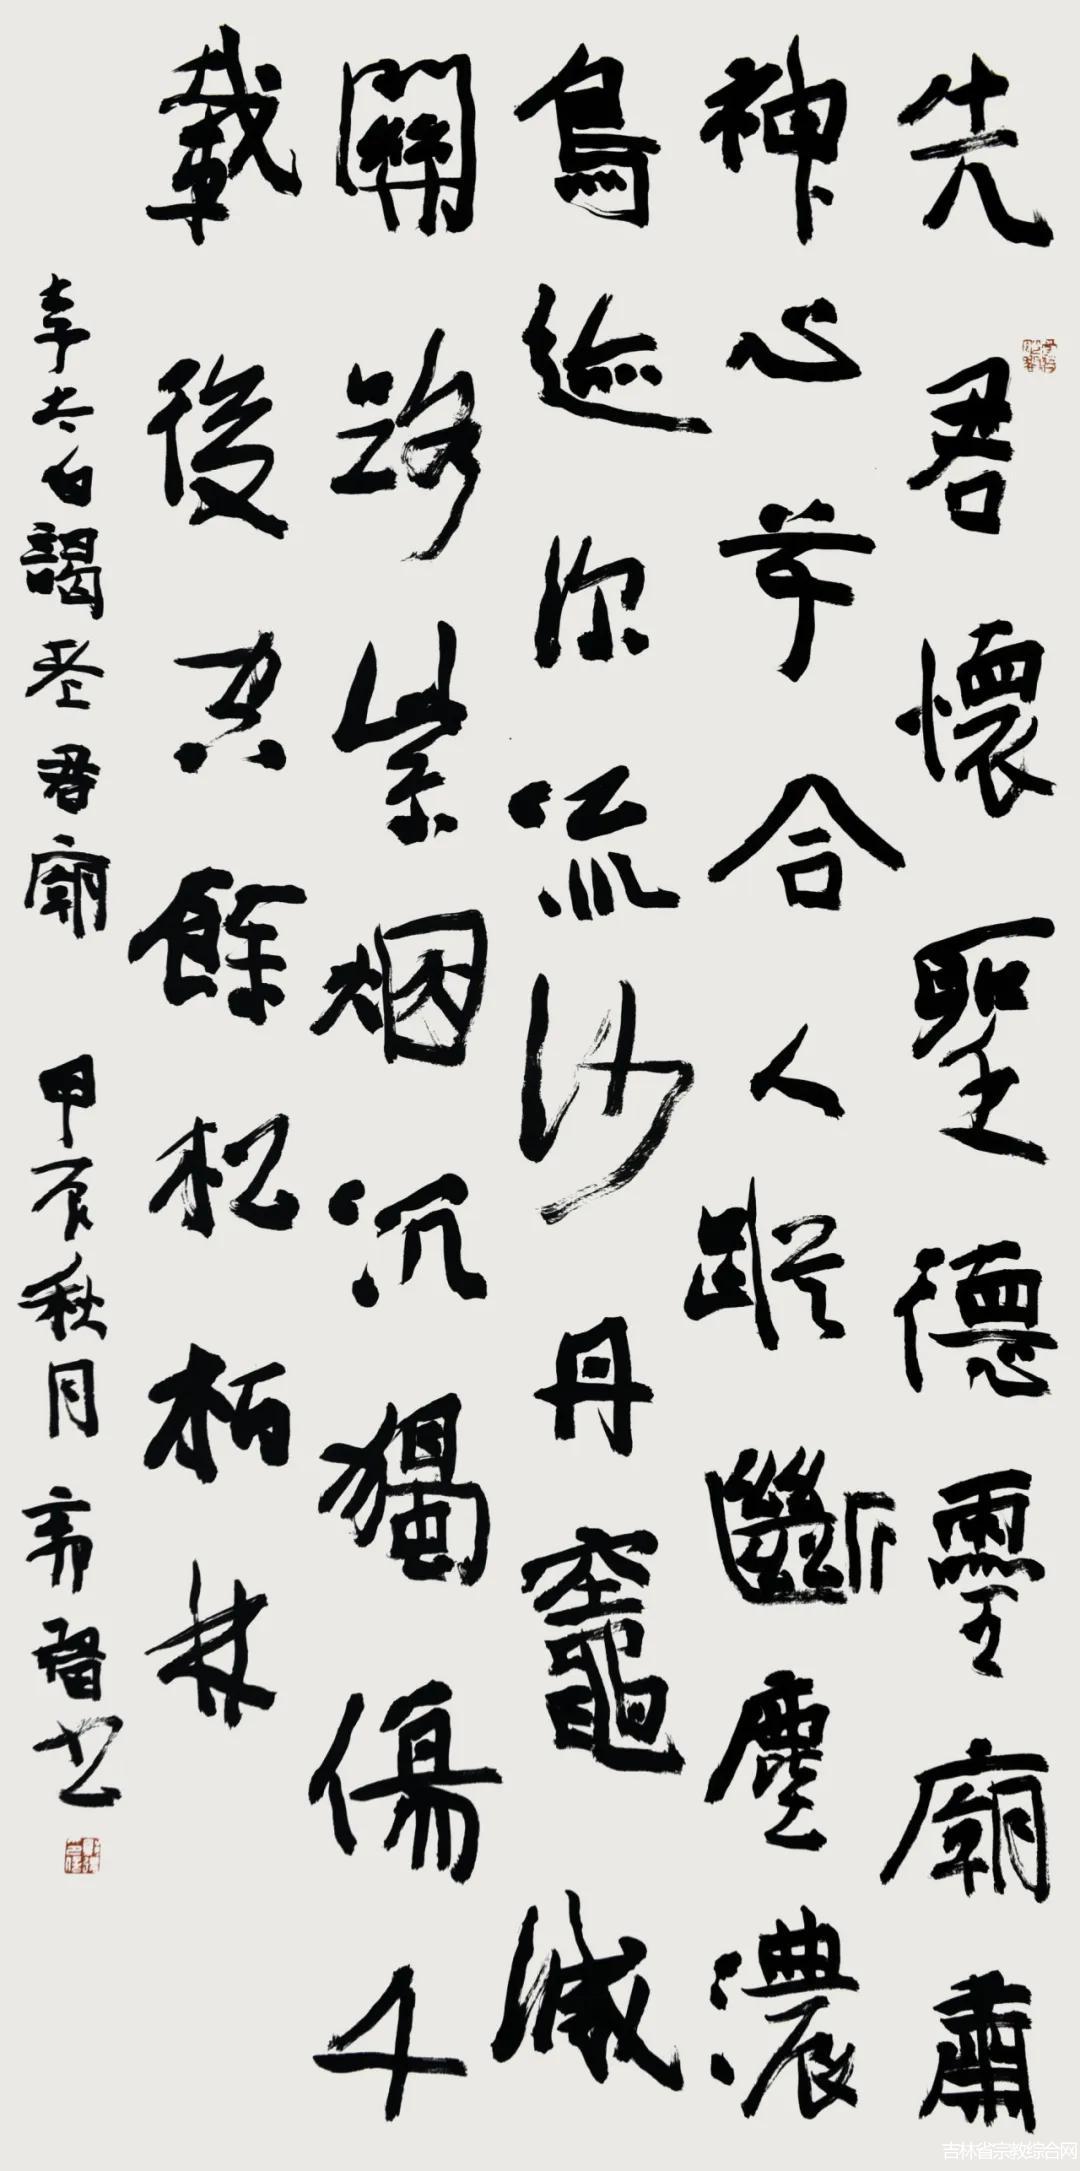 先君懷聖德靈廟肅
神心草合人蹤斷塵濃
鳥迹深流沙丹竈滅
關路紫烟沉獨傷千
載後空餘松柏林
李太白謁老君廟 甲辰秋月 书
吉林省宗教综合网